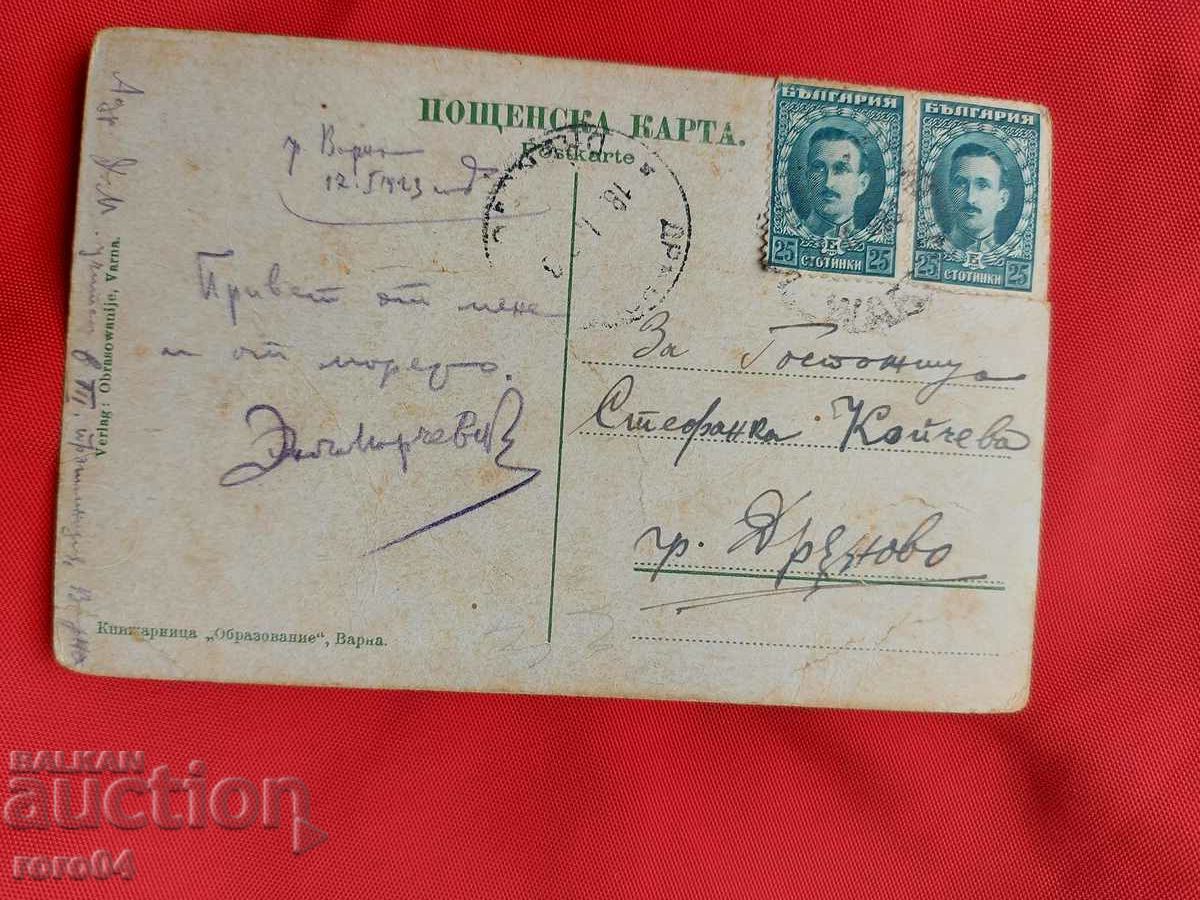 ПОЩЕНСКА КАРТА.
Postkarte
гр. Варна
12.I 1923 год.
Привет от мене
и от морето.
За Госпожица
Стефанка Койчева
гр. Дряново
БЪЛГАРИЯ
25 СТОТИНКИ 25
БЪЛГАРИЯ
25 СТОТИНКИ 25
Verlag: Obrasowanije, Varna.
Книжарница „Образование“, Варна.
BALKAN
auction
roro04